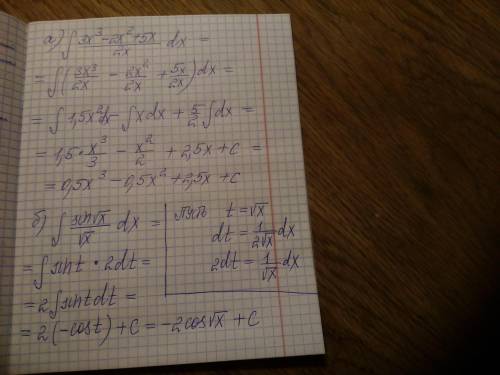 а) ∫ (3x³-2x²+5x)/2x dx =
= ∫ (3x³/2x - 2x²/2x + 5x/2x) dx =
= ∫ 1,5x² dx - ∫ x dx + 5/2 ∫ dx =
= 1,5 · x³/3 - x²/2 + 2,5x + C =
= 0,5x³ - 0,5x² + 2,5x + C
б) ∫ sin√x/√x dx =
= ∫ sin t · 2dt =
= 2 ∫ sin t dt =
= 2(-cos t) + C = -2cos√x + C
пусть t = √x
dt = 1/2√x dx
2dt = 1/√x dx